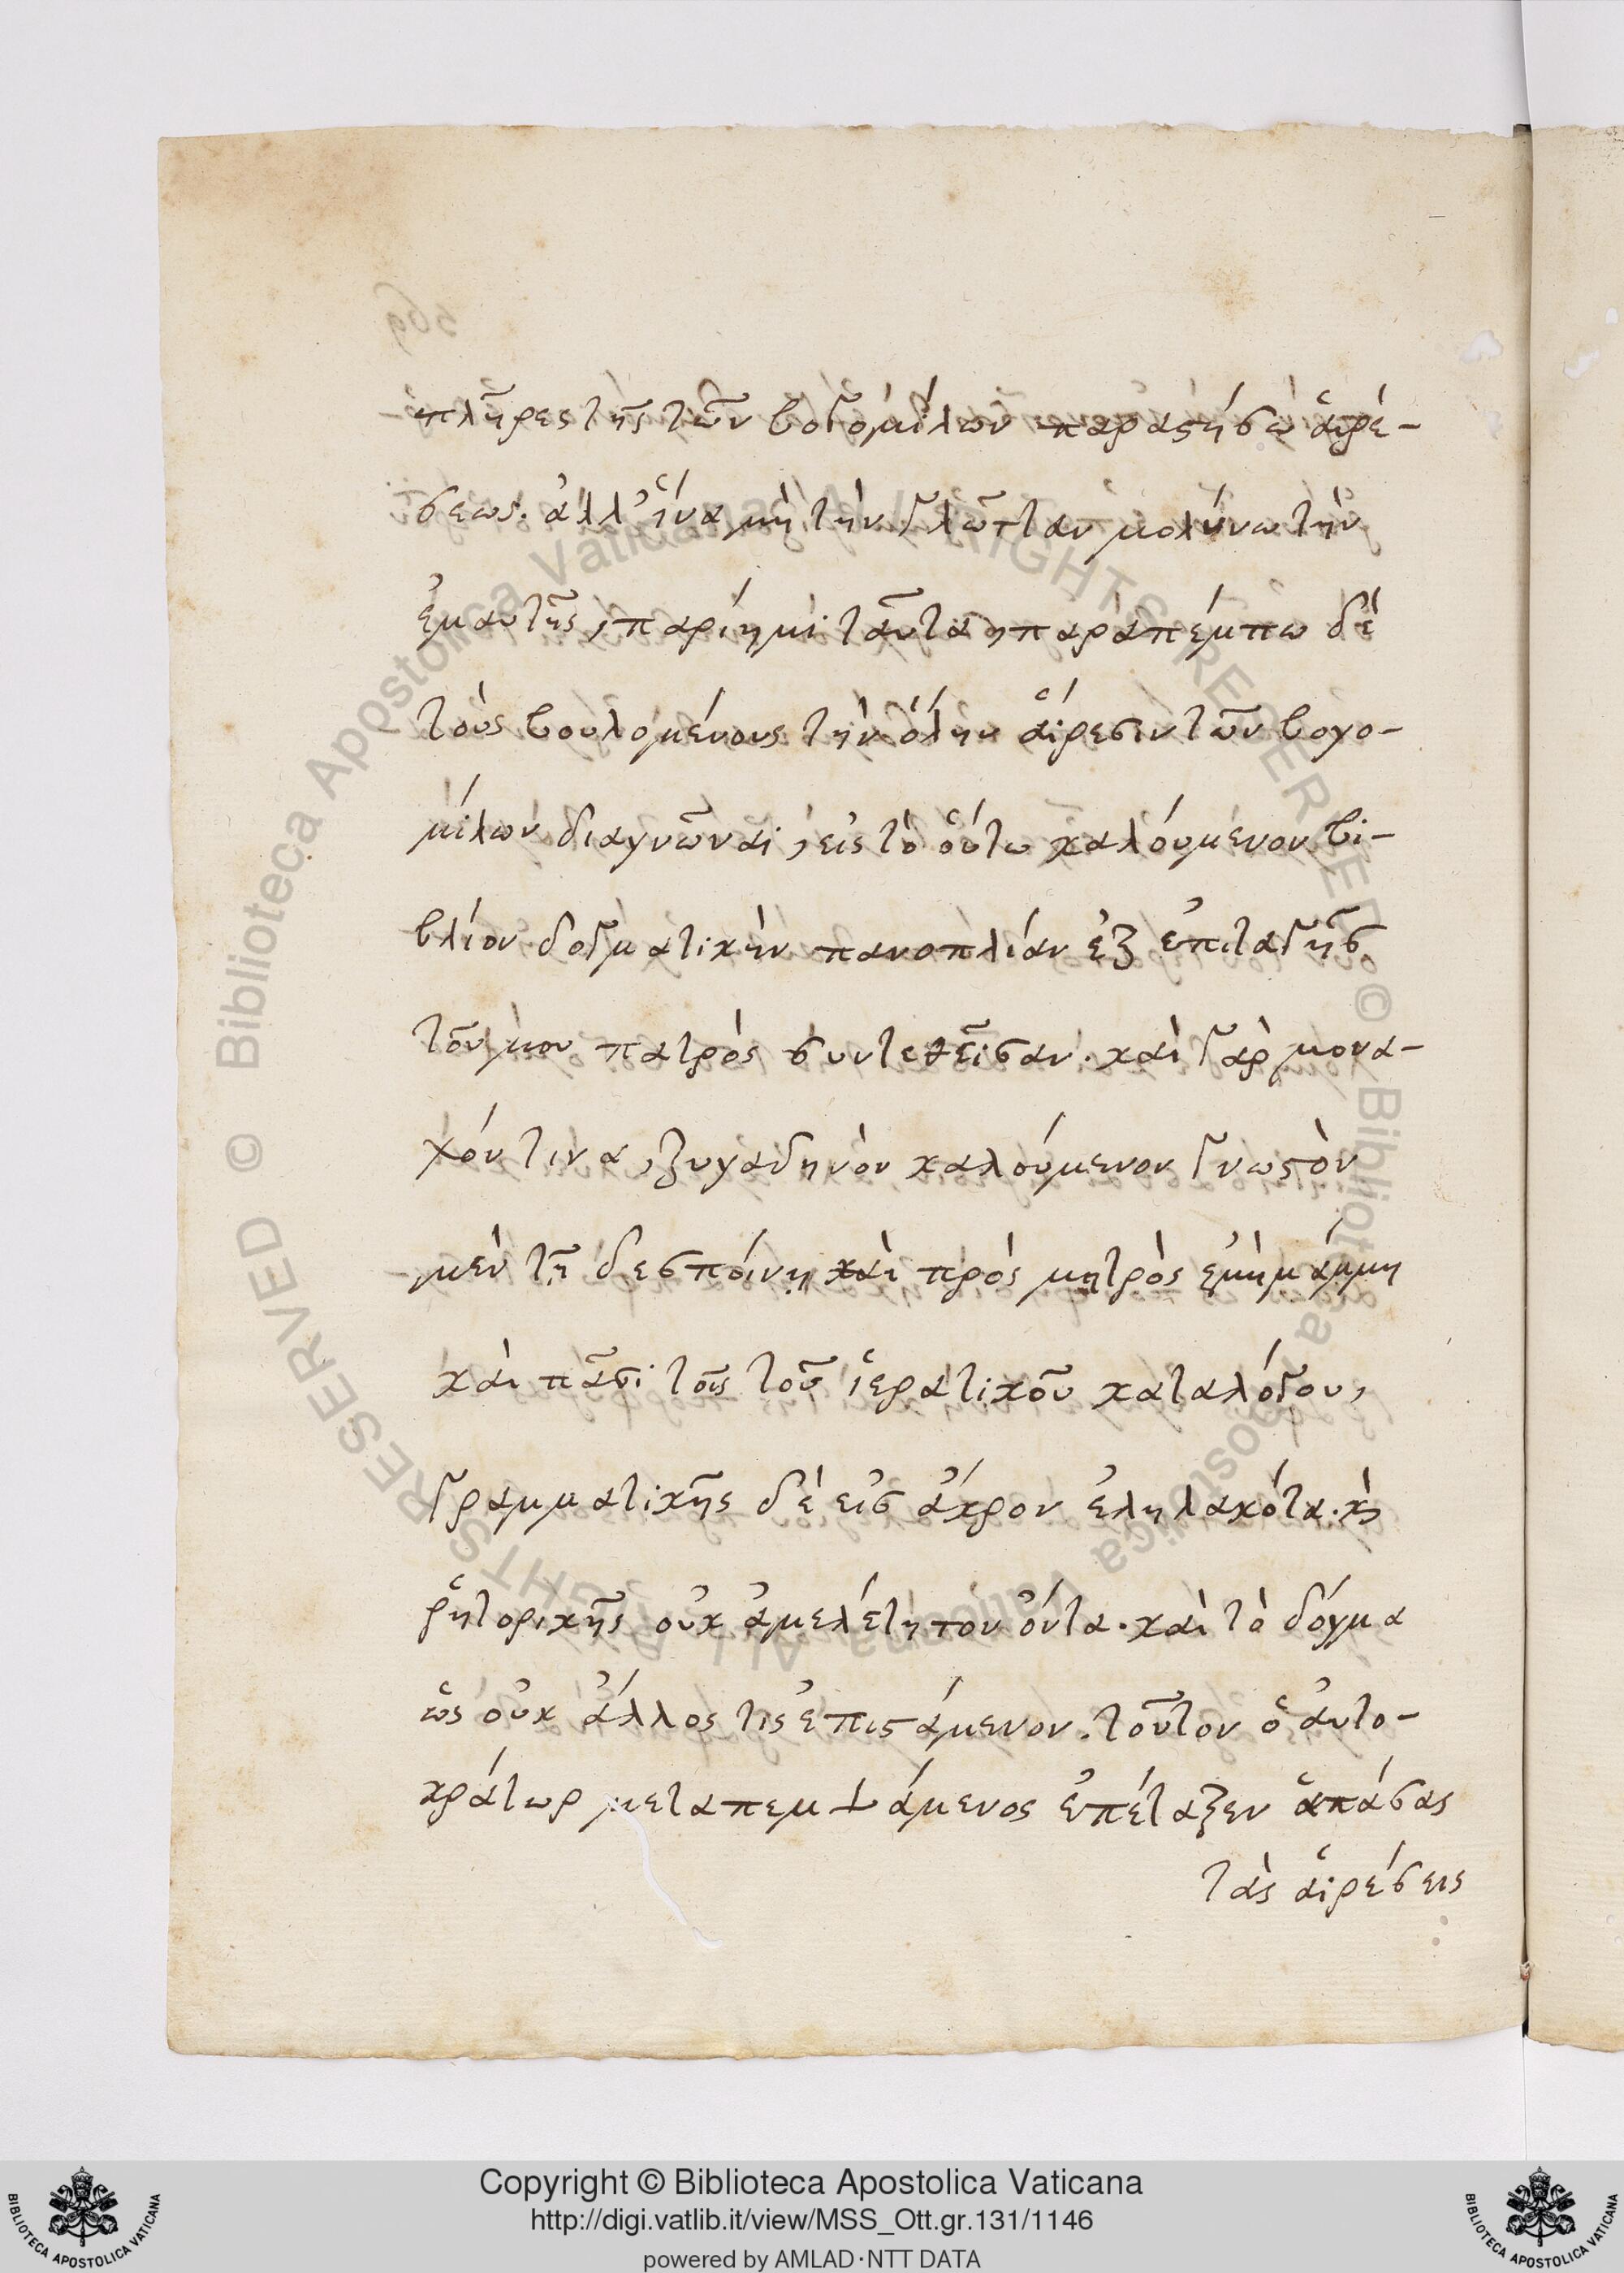 πλῆρες τῆς τῶν βογομίλων παραστήσω αἱρέ-
σεως. ἀλλ' ἵνα μὴ τὴν γλῶτταν μολύνω τὴν
ἐμαυτῆς, παρίημι ταῦτα, παραπέμπω δὲ
τοὺς βουλομένους τὴν ὅλην αἵρεσιν τῶν βογο-
μίλων διαγνῶναι, εἰς τὸ οὕτω καλούμενον βι-
βλίον δογματικὴν πανοπλίαν ἐξ ἐπιταγῆς
τοὐμου πατρὸς συντεθεῖσαν. καὶ γὰρ μονα-
χόν τινα, ζυγαδηνὸν καλούμενον γνωστὸν
μὲν τῇ δεσποίνῃ καὶ πρὸς μητρὸς ἐμῇ μάμμῃ
καὶ πᾶσι τοῖς τοῦ ἱερατικοῦ καταλόγου,
γραμματικῆς δὲ εἰς ἄκρον ἐληλακότα. κỳ
ῥητορικῆς οὐκ ἀμελέτητον ὄντα. καὶ τὸ δόγμα
ὡς οὐκ ἄλλος τις ἐπιστάμενον. τοῦτον ὁ αὐτο-
κράτωρ μεταπεμψάμενος ἐπέταξεν ἁπάσας
τὰς αἱρέσεις
Copyright © Biblioteca Apostolica Vaticana
http://digi.vatlib.it/view/MSS_Ott.gr.131/1146
powered by AMLAD·NTT DATA
BIBLIOTECA APOSTOLICA VATICANA
BIBLIOTECA APOSTOLICA VATICANA